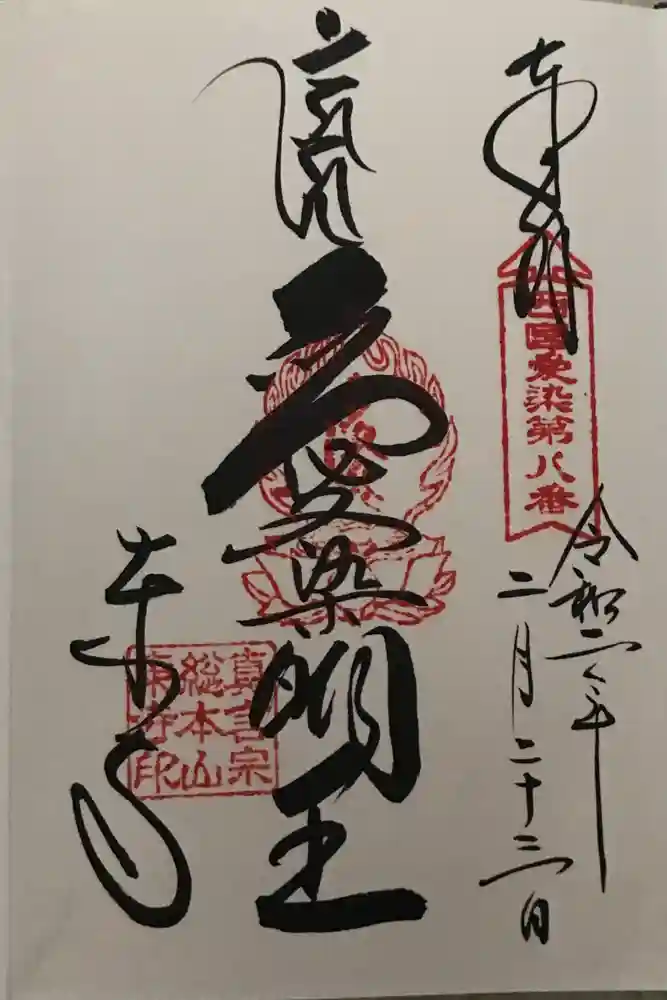 奉拝
西國愛染第八番
令和二年
二月二十三日
愛染明王
眞言宗
総本山
東寺印
東寺